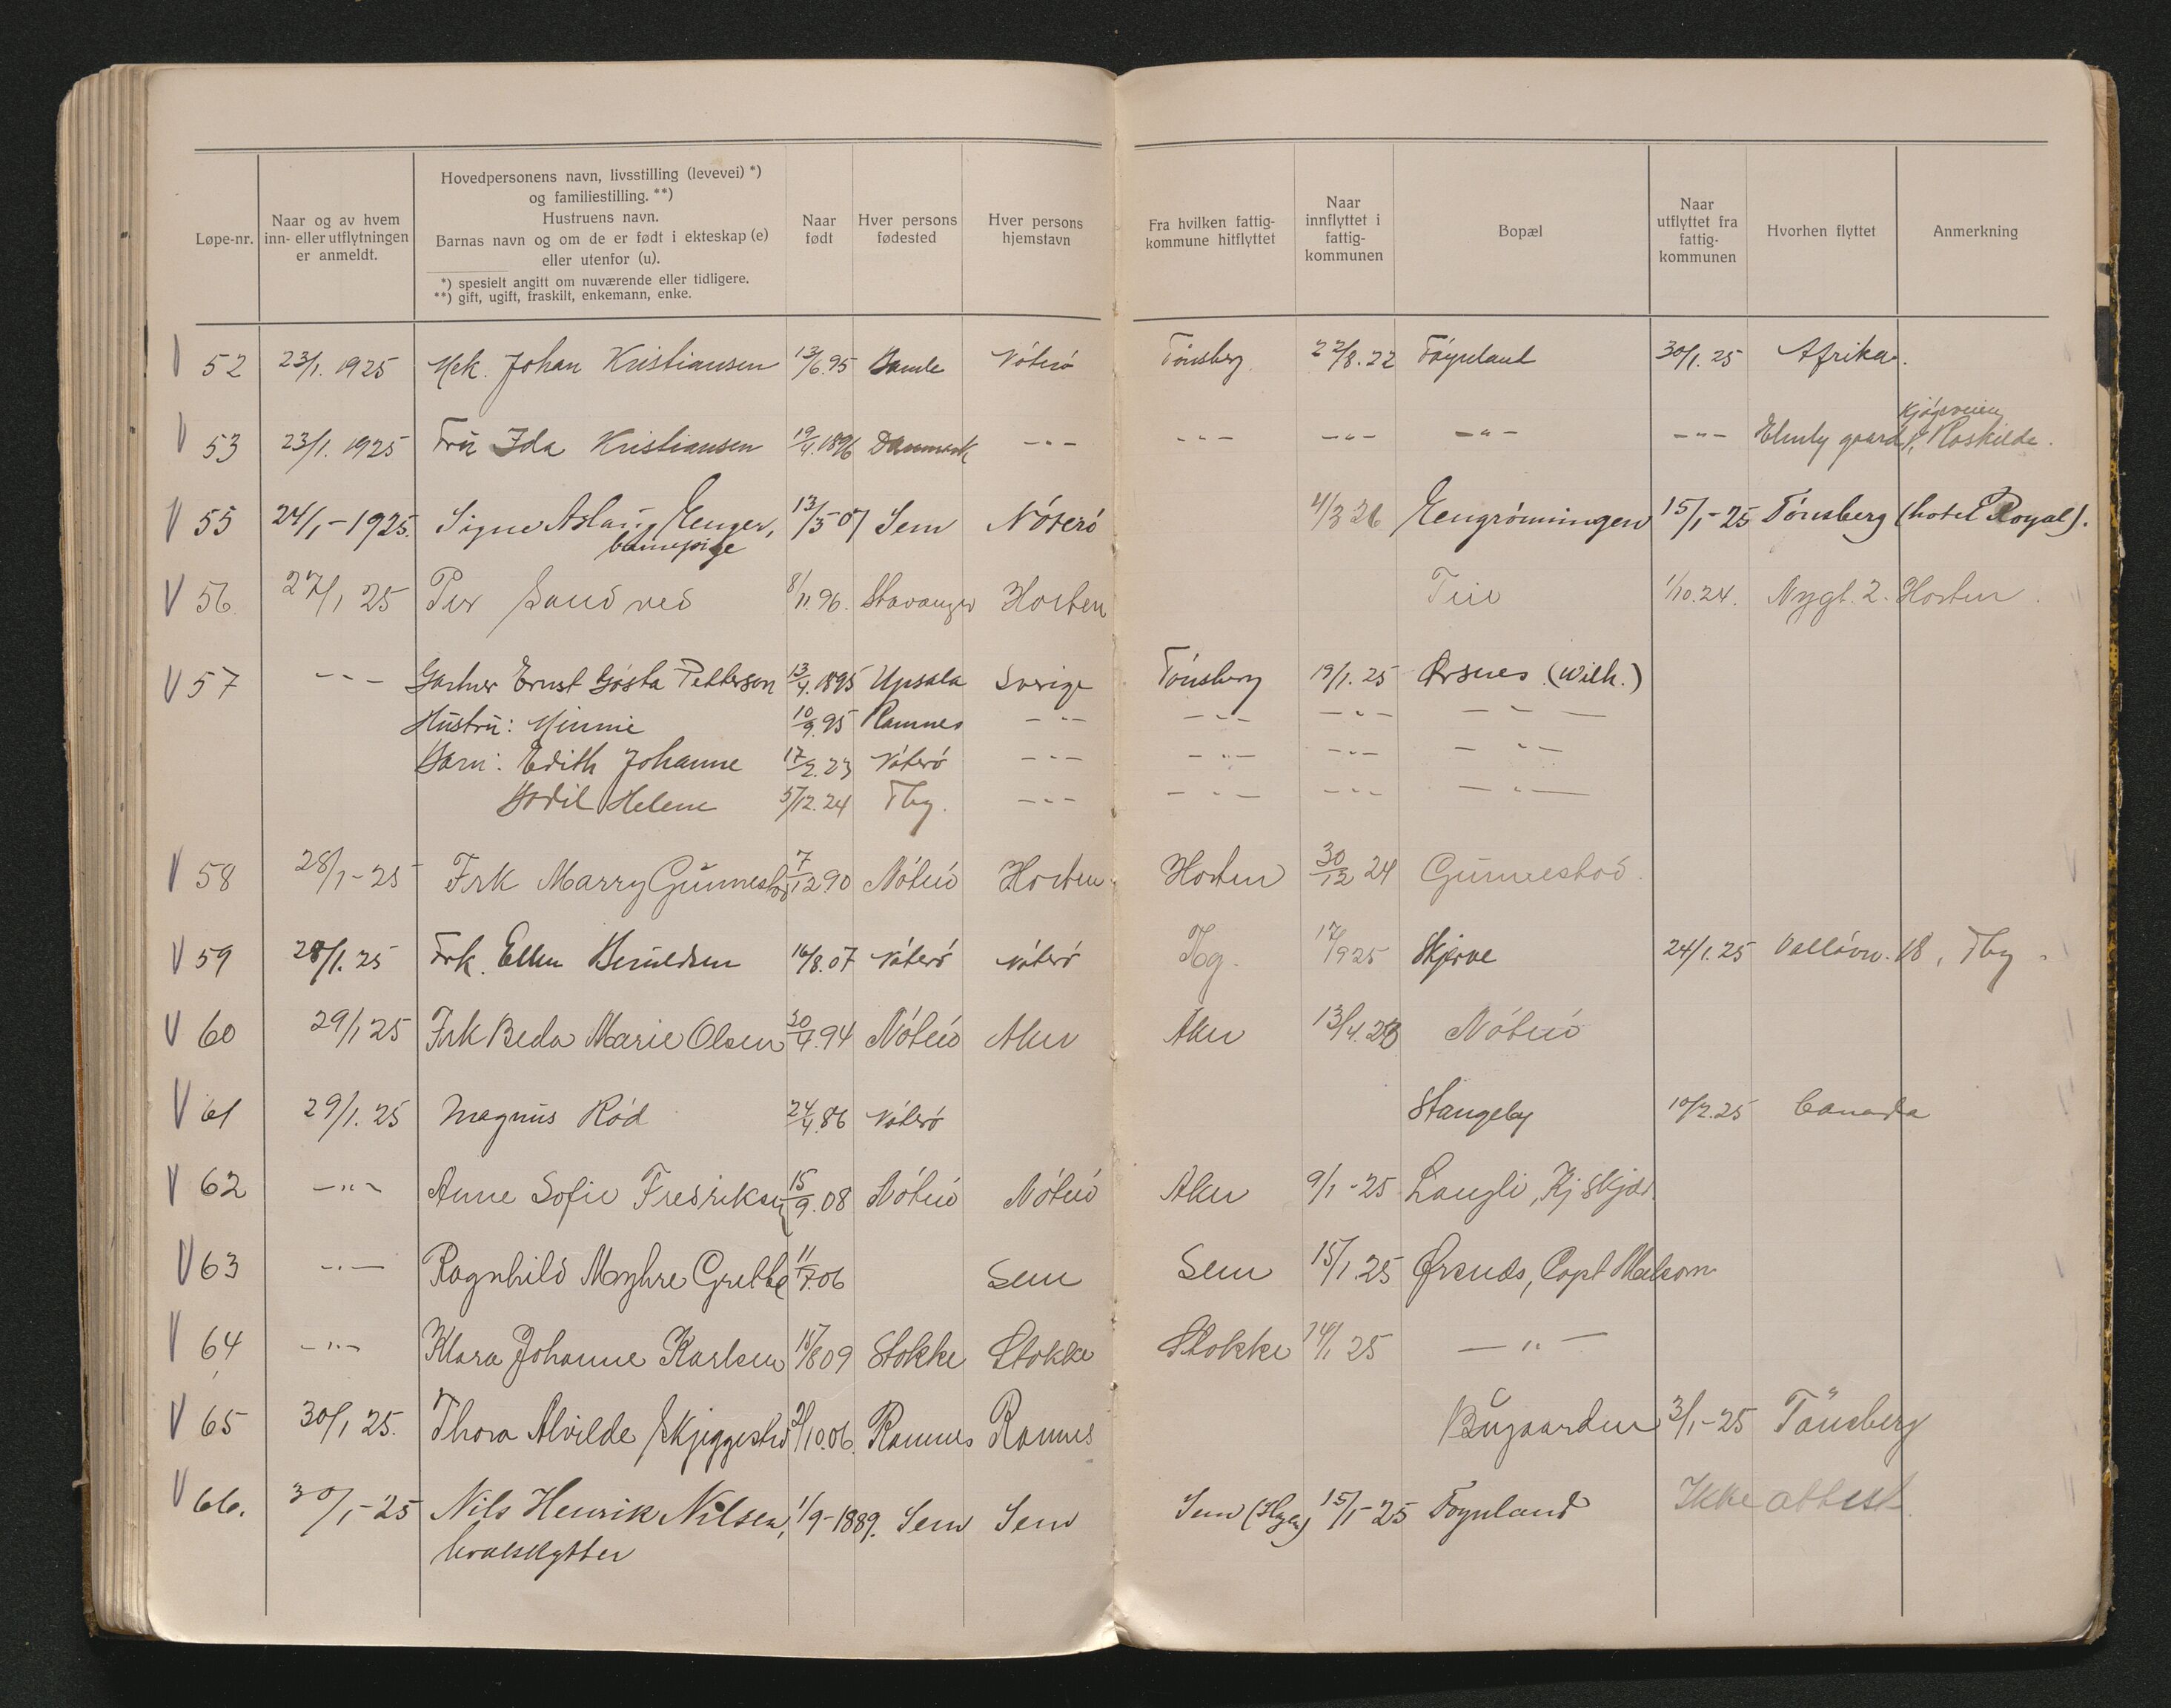 Løpe-nr.
Naar og av hvem
inn- eller utflytningen
er anmeldt.
Hovedpersonens navn, livsstilling (levevei) *)
og familiestilling. **)
Hustruens navn.
Barnas navn og om de er født i ekteskap (e)
eller utenfor (u).
*) spesielt angitt om nuværende eller tidligere.
**) gift, ugift, fraskilt, enkemann, enke.
Naar
født
Hver persons
fødested
Hver persons
hjemstavn
Fra hvilken fattig-
kommune hitflyttet
Naar
innflyttet i
fattig-
kommunen
Bopæl
Naar
utflyttet fra
fattig-
kommunen
Hvorhen flyttet
Anmerkning
V 52 23/1. 1925 Mek. Johan Kristiansen 13/6.95 Bamle Nóteró Tönsberg 22/8.22 Föynland 30/1.25 Afrika.
V 53 23/1. 1925 Frü Ida Kristiansen 19/4.1896 Danmark -"- -"- -"- -"- -"- Elmly gaard, Roskilde.
V 55 24/1-1925. Signe Aslaug Enger, 13/5-07 Sem Nóteró 4/3 26 Engrönningen 15/1-25 Tónsberg (hotel Royal).
barnepige
V 56 27/1 25 Per Sandved 8/11.96. Stavanger Horten Teie 1/10.24. Nygt. 2. Horten.
V 57 -"- Gartner Ernst Gösta Petterson 13/4.1895 Upsala Sverige Tónsberg 19/1.25 Ørsnes (Wilh.)
Hüstrü: Minnie 10/9.95 Ramnes -"- -"- -"- -"-
Barn: Edith Johanne 17/2.23 Nóteró -"- -"- -"- -"-
Bodil Helene 5/12.24 Tbg. -"- -"- -"- -"-
V 58 28/1-25 Frk Marry Gunnestad 7/12 90 Nóteró Horten Horten 30/12 24 Gunnestad.
V 59 28/1.25 Frk. Ellen Berntdsen 16/8.07 Nóteró Nóteró Tbg. 17/9 25 Skjerve 24/1.25 Vallóvn. 18, Tbg.
V 60 29/1 25 Frk Beda Marie Olsen 30/4.94 Nóteró Aker Aker 13/4.23 Nóteró
V 61 29/1.25 Magnus Ród 24/4.86 Nóteró Stangeby 10/2.25 Canada
V 62 -"- Anne Sofie Fredriksen 15/9.08 Nóteró Nóteró Aker 9/1-25 Langli, Kjøskjær
V 63 -"- Ragnhild Myhre Grette 11/7.06 Sem Sem 15/1.25 Ørsnes, Capt Melsom
V 64 -"- Klara Johanne Karlsen 15/8 09 Stokke Stokke Stokke 14/1 25 -"-
V 65 30/1 25. Thora Alvilde Skjeggestad 2/10.06. Ramnes Ramnes Bugaarden 3/1-25 Tönsberg
V 66. 30/1-25 Nils Henrik Nilsen, 1/9-1889. Sem Sem Sem 15/1-25 Föynland Ikke attest.
hvalskytter